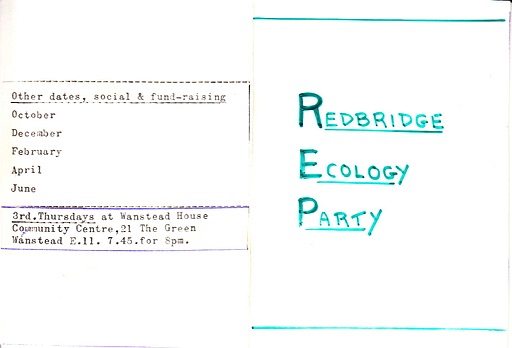 Other dates, social & fund-raising
October
December
February
April
June
3rd.Thursdays at Wanstead House
Community Centre,21 The Green
Wanstead E.11. 7.45.for 8pm.
REDBRIDGE
ECOLOGY
PARTY